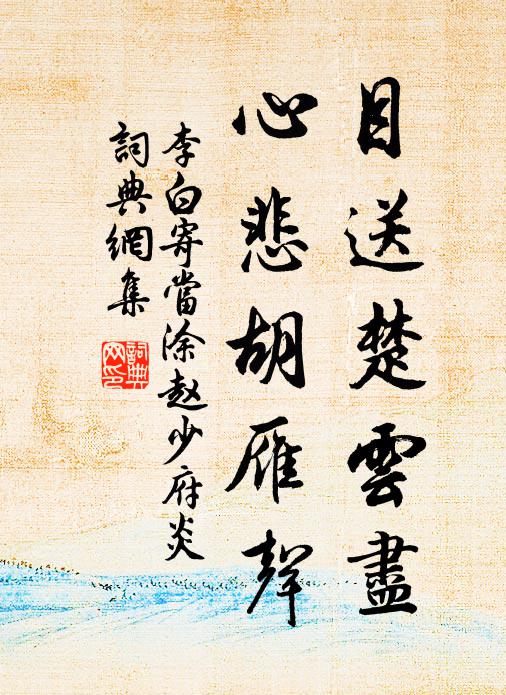 目送楚雲盡
心悲胡雁聲
李白寄當涂赵少府炎
詞典網集
詞典網印